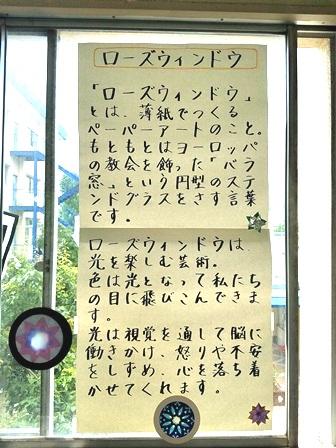 ローズウィンドウ
「ローズウィンドウ」
とは、薄紙でつくる
ペーパーアートのこと。
もともとはヨーロッパ
の教会を飾った「バラ
窓」という円型のステ
ンドグラスをさす言葉
です。
ローズウィンドウは、
光を楽しむ芸術。
色は光となって私たち
の目に飛びこんできま
す。
光は視覚を通して脳に
働きかけ、怒りや不安
をしずめ、心を落ち着
かせてくれます。